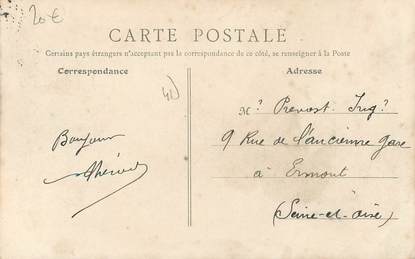 20€
CARTE POSTALE
Certains pays étrangers n'acceptant pas la correspondance de ce côté, se renseigner à la Poste
Correspondance
Adresse
Mr Prevost Ing
9 Rue de l'ancienne gare
à Ermont
(Seine-et-oise)
Bonjour